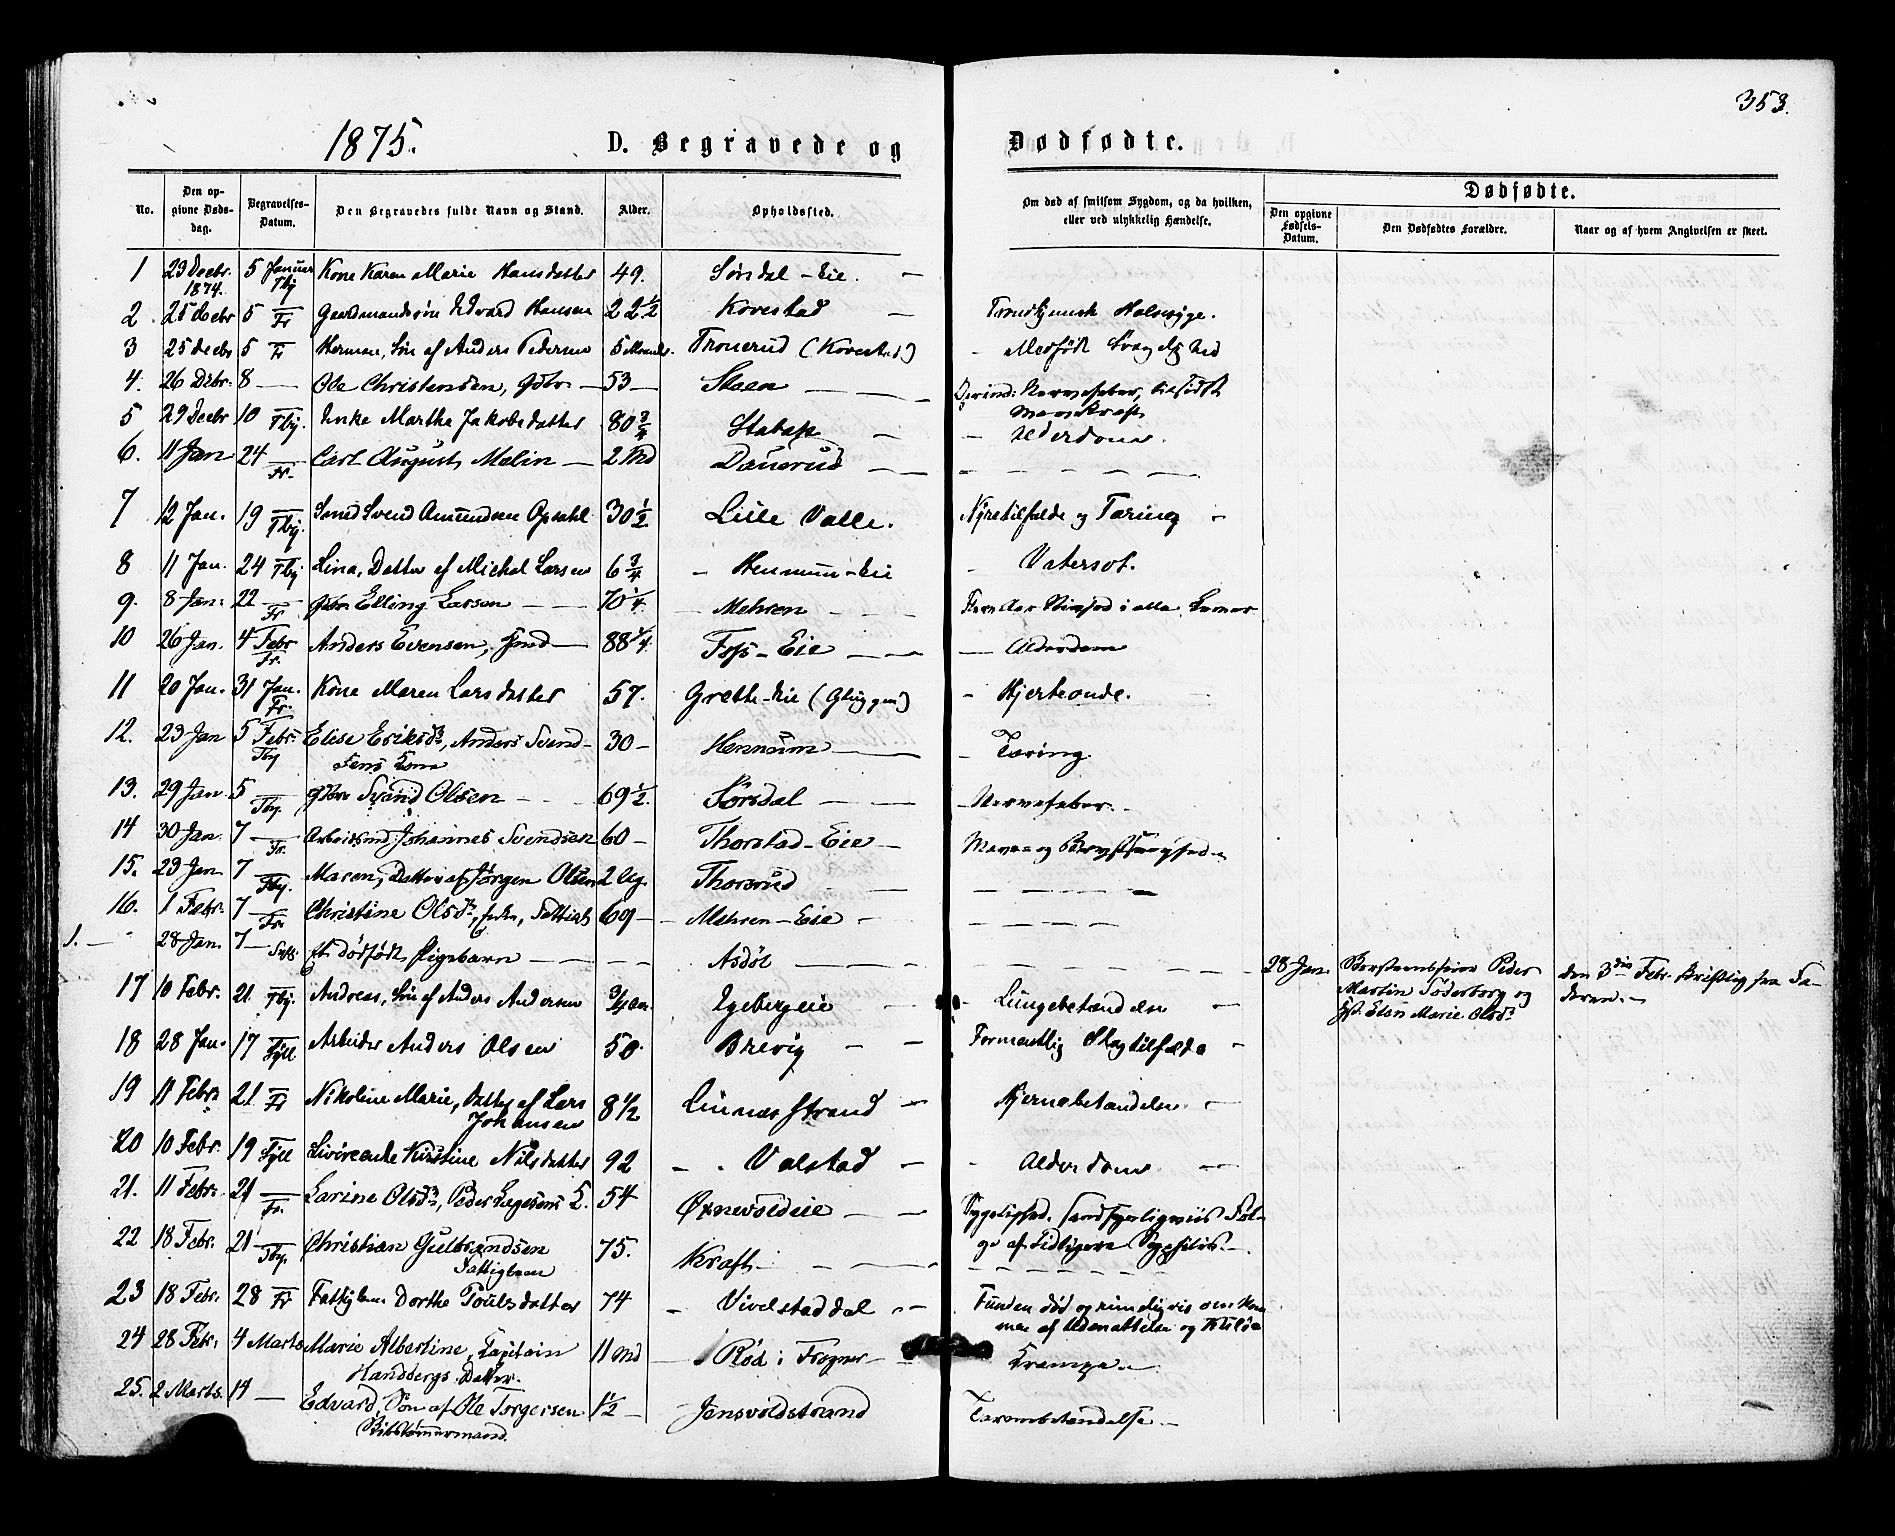 353.
1875. D. Begravede og Dødfødte.
No. Den opgivne Døds-dag. Begravelses-Datum. Den Begravedes fulde Navn og Stand. Alder. Opholdssted. Om død af smitsom Sygdom, og da hvilken, eller ved ulykkelig Hændelse. Dødfødte.
Den opgivne Fødsels-Datum. Den Dødfødtes Forældre. Naar og af hvem Angivelsen er skeet.
1 29 Decbr. 1874. 5 Januar Tby Kone Karen Marie Hansdatter 49. Søndal-Eie. —
2 25 Decbr 5 — Fr Gaardmandssøn Edvard Hansen 22 ½ Kovestad — Halssyge.
3 25 Decbr 5 — Fr Herman, Søn af Anders Pedersen 5 Maaneder Tronerud (Kovestad) - Medfødt Svagelighed
4. 26 Dcbr. 8 — Ole Christensen, Gbr — 53 — Støen — Nervefeber, tilsidst
5 29 Decbr 10 — Tby. Enke Marthe Jakobsdatter 80 ¾ Stabæk — - Alderdom.
6. 11 Jan 24 — Fr. Carl August Malin — 2 Md Dauerud — —
7 12 Jan. 19 — Tby. Svend Amundsen Opsahl 30 ½ Lille Valle. Nyretilfælde og Tæring -
8 11 Jan. 24 — Tby Lina, Datter af Michel Larsen 6 ¾ - Hennum-Eie - Vatersot.
9. 8 Jan. 22 — Fr Gbr. Elling Larsen — — 70 ¼ - Mehren - i alle Lemer
10 26 Jan. 4 Febr Fr. Anders Evensen, — 88 ¼ Foss-Eie — — — Alderdom
11 20 Jan. 31 Jan. Fr. Kone Maren Larsdatter 57. Grette-Eie (Gluggen) - Hjerteonde.
12. 23 Jan 5 Febr. Tby Elise Eriksdr, Anders Svendsens Kone 30 — Hennum — - Tæring.
13. 29 Jan 5 — Tby. Gbr Svend Olsen — - 69 ½. Sørsdal — - Nervefeber. -
14 30 Jan. 7 — Fr. Arbeidsmd. Johannes Svendsen 60 — Thorstad-Eie — Mave- og Brystsvaghed -
15. 23 Jan. 7 — Tby. Maren, Datter af Jørgen Olsen 2 Ug. Thorsrud — - — —
16. 1 Febr. 7 — Fr Christine Olsdr, 69 — Mehren-Eie — - — —
1. — " 28 Jan. 7 — Et dødfødt Pigebarn — — — Asdøl — — 28 Jan. Peder Martin Søderborg og Hst. Elen Marie Olsdr den 3die Febr. skriftlig fra Faderen. -
17 10 Febr. 21 Tby. Andreas, Søn af Anders Andersen ¾ Aar. Egebergeie - - Lungebetændelse -
18 28 Jan. 17 Syll Arbeider Anders Olsen 50. Brevig — - Formentlig Slagtilfælde -
19 11 Febr. 21 — Fr Nikoline Marie, Datter af Lars Johansen 8 ½ Linnesstrand — Hjernebetændelse. -
20 10 Febr. 19 Syll Kirstine Nilsdatter 92 - . Valstad — - Alderdom —
21. 11 Febr. 21 — Fr. Larine Olsdr, Peder K. 54 Øxnevoldeie — - Sygelighed. sandsynligviis Følge af tidligere Syphilis. -
22 18 Febr. 21 — Tby. Christian Gulbrandsen Fattiglem 75. Kraft. - — —
23 18 Febr. 28 — Fr Fattiglem. Dorthe Poulsdatter 74 - Vivelstaddal - Funden død og rimeligvis omkommen af Udmattelse og Kulde
24 28 Febr. 4 Marts Marie Albertine, Capitain Handbergs Datter. 11 Md — Rød i Frogner - Krampe -
25. 2 Marts. 14 — Edvard, Søn af Ole Torgersen Skibstømmermand. 1 ½ — Jensvoldstrand Tarmbetændelse. -